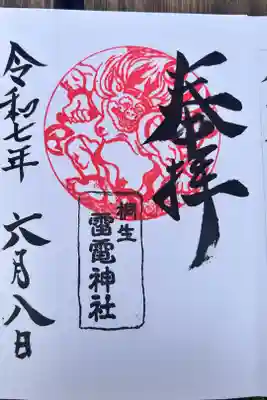 奉拝
桐生
雷電神社
令和七年
六月八日